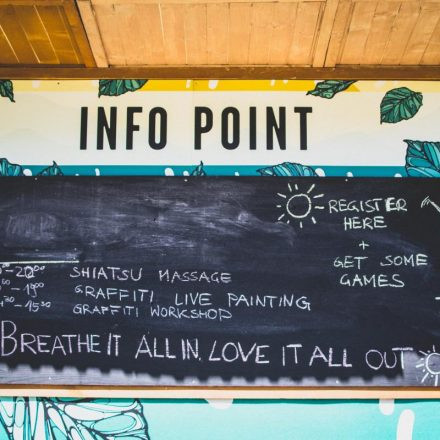 INFO POINT
REGISTER
HERE
+
GET SOME
GAMES
SHIATSU MASSAGE
GRAFFITI LIVE PAINTING
GRAFFITI WORKSHOP
BREATHE IT ALL IN, LOVE IT ALL OUT